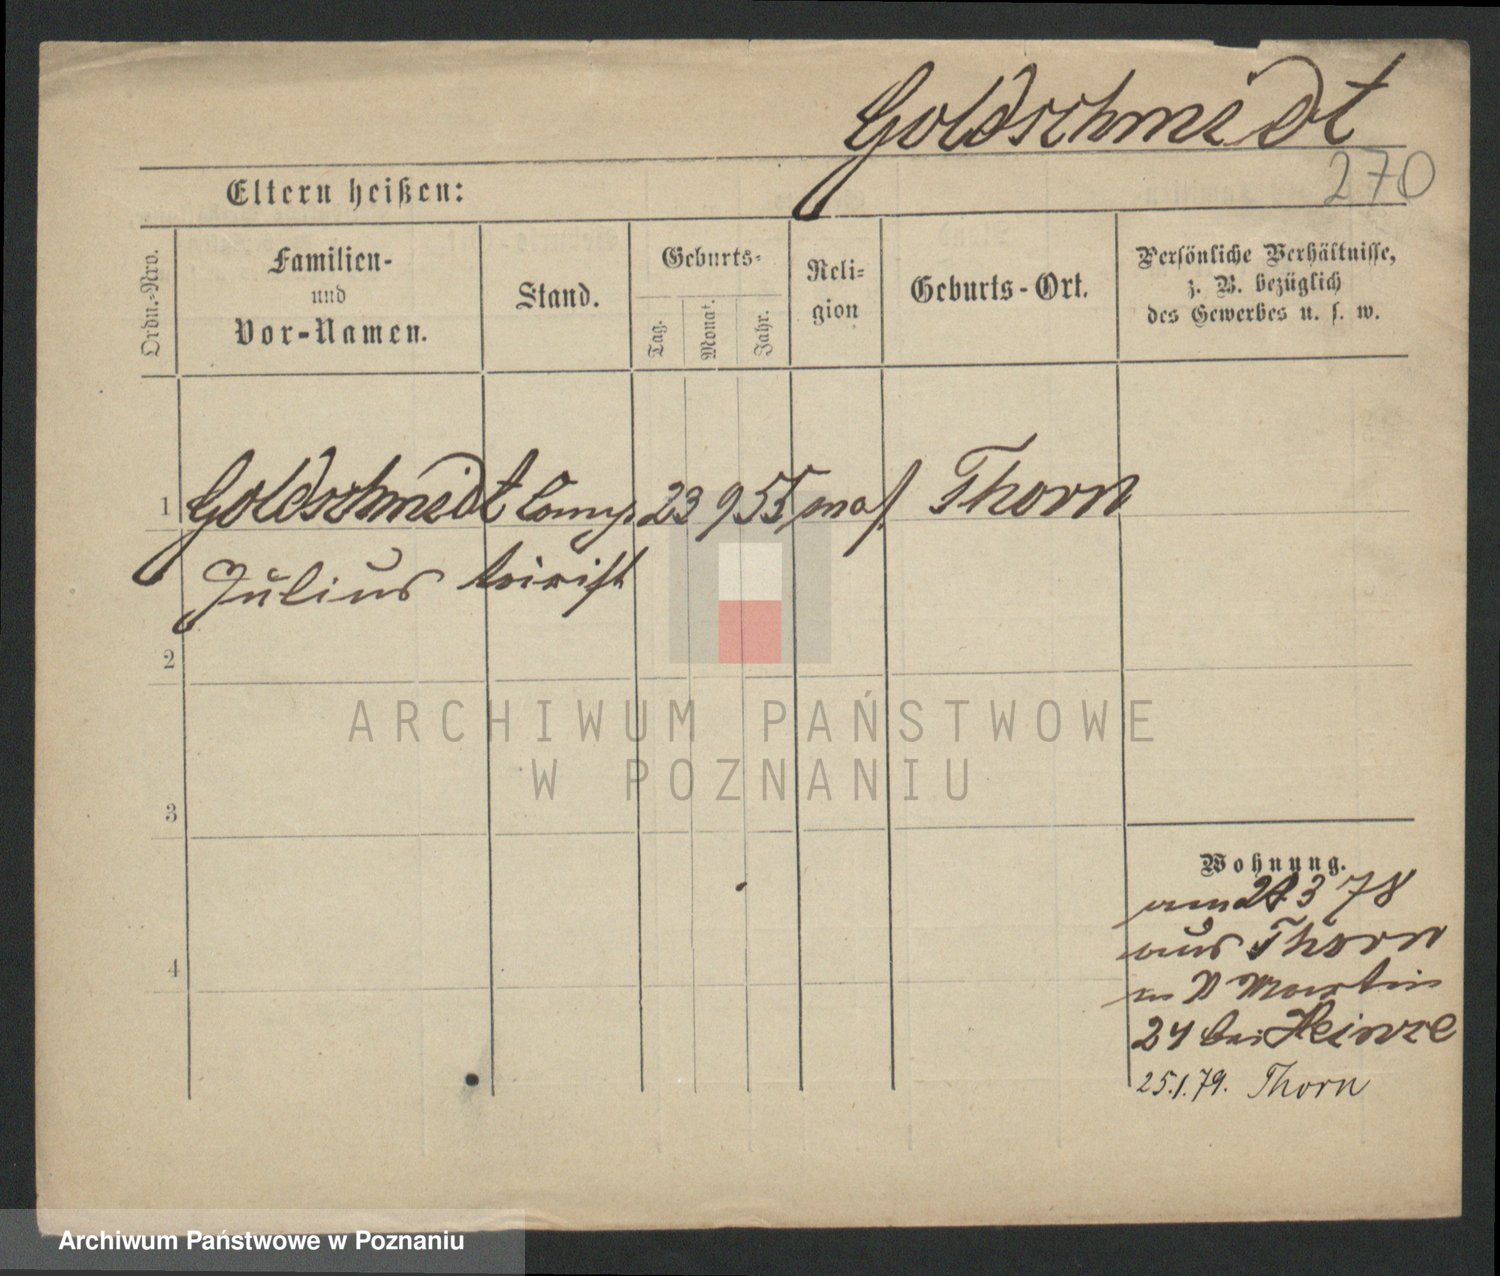 Goldschmidt
270
Eltern heißen:
Ordn.-Nro.
Familien-
und
Vor-Namen.
Stand.
Geburts-
Tag.
Monat.
Jahr.
Reli-
gion
Geburts-Ort.
Persönliche Verhältnisse,
z. B. bezüglich
des Gewerbes u. s. w.
1 Goldschmidt Comp 23 9 55 mos Thorn
Julius toirist
2
ARCHIWUM PAŃSTWOWE
W POZNANIU
3
Wohnung.
am 21.3 78
aus Thorn
n Martin
24 bei Heinze
4
25.1.79. Thorn
Archiwum Państwowe w Poznaniu